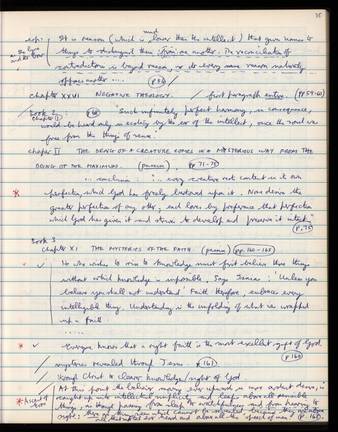 15
esp: It is reason (which is lower than the intellect) that gives names to
things to distinguish them from one another. The reconciliation of
contradiction is beyond reason, as to every name reason naturally
opposes another .... (p 54)
CHAPTER XXVI NEGATIVE THEOLOGY. / first paragraph entire. (pp 59-60)
Book 2
Chapter II "Such infinitely perfect harmony, in consequence,
would be heard only in ecstasy by the ear of the intellect, once the soul was
free from the things of sense."
Chapter II THE BEING OF A CREATURE COMES IN A MYSTERIOUS WAY FROM THE
BEING OF THE MAXIMUM. (passim) pp. 71-75
... conclusion: ".. every creature rest content in its own
* perfection, which God has freely bestowed upon it. None desires the
greater perfection of any other; each loves by preference that perfection
which God has given it and strives to develop and preserve it intact."
p. 75
Book 3
Chapter XI THE MYSTERIES OF THE FAITH (passim) (pp. 160-165)
✓ He who wishes to rise to knowledge must first believe those things
without which knowledge is impossible. Says Isaias: 'Unless you
believe you shall not understand'. Faith therefore, embraces every
intelligible thing. Understanding is the unfolding of what was wrapped
up in faith
......
* ✓ Everyone knows that a right faith is the most excellent gift of God
p 160
mysteries revealed through Jesus. * 161
through Christ to clearer knowledge/sight of God
* Ascent of
At this point the believer
caught up into intellectual simplicity and leaps above all sensible
things, as though passing from sleep to wakefulness and from hearing to
sight; there he sees things which cannot be revealed, because they are above
all